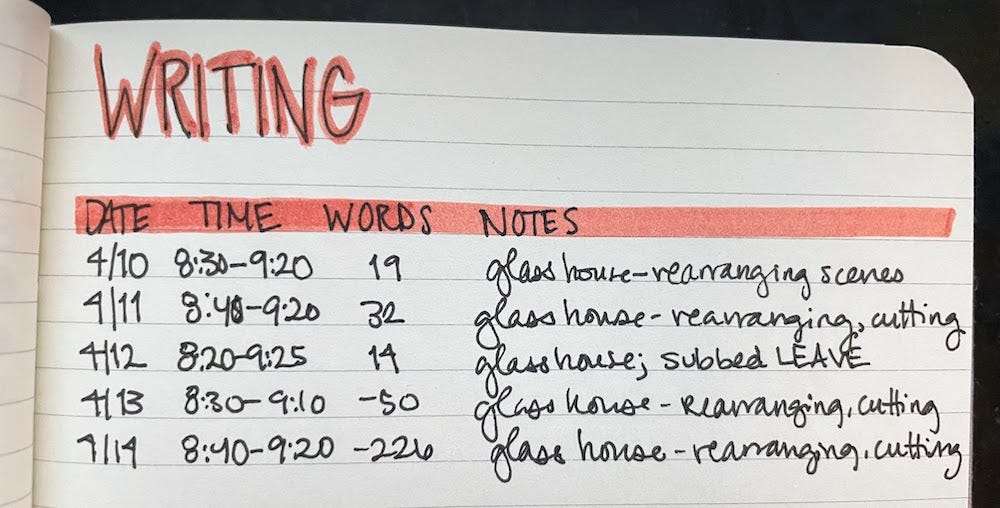 WRITING
DATE TIME WORDS NOTES
4/10 8:30-9:20 19 glass house-rearranging scenes
4/11 8:40-9:20 32 glass house - rearranging, cutting
4/12 8:20-9:25 14 glass house; subbed LEAVE
4/13 8:30-9:10 -50 glass house - rearranging, cutting
4/14 8:40-9:20 -226 glass house - rearranging, cutting